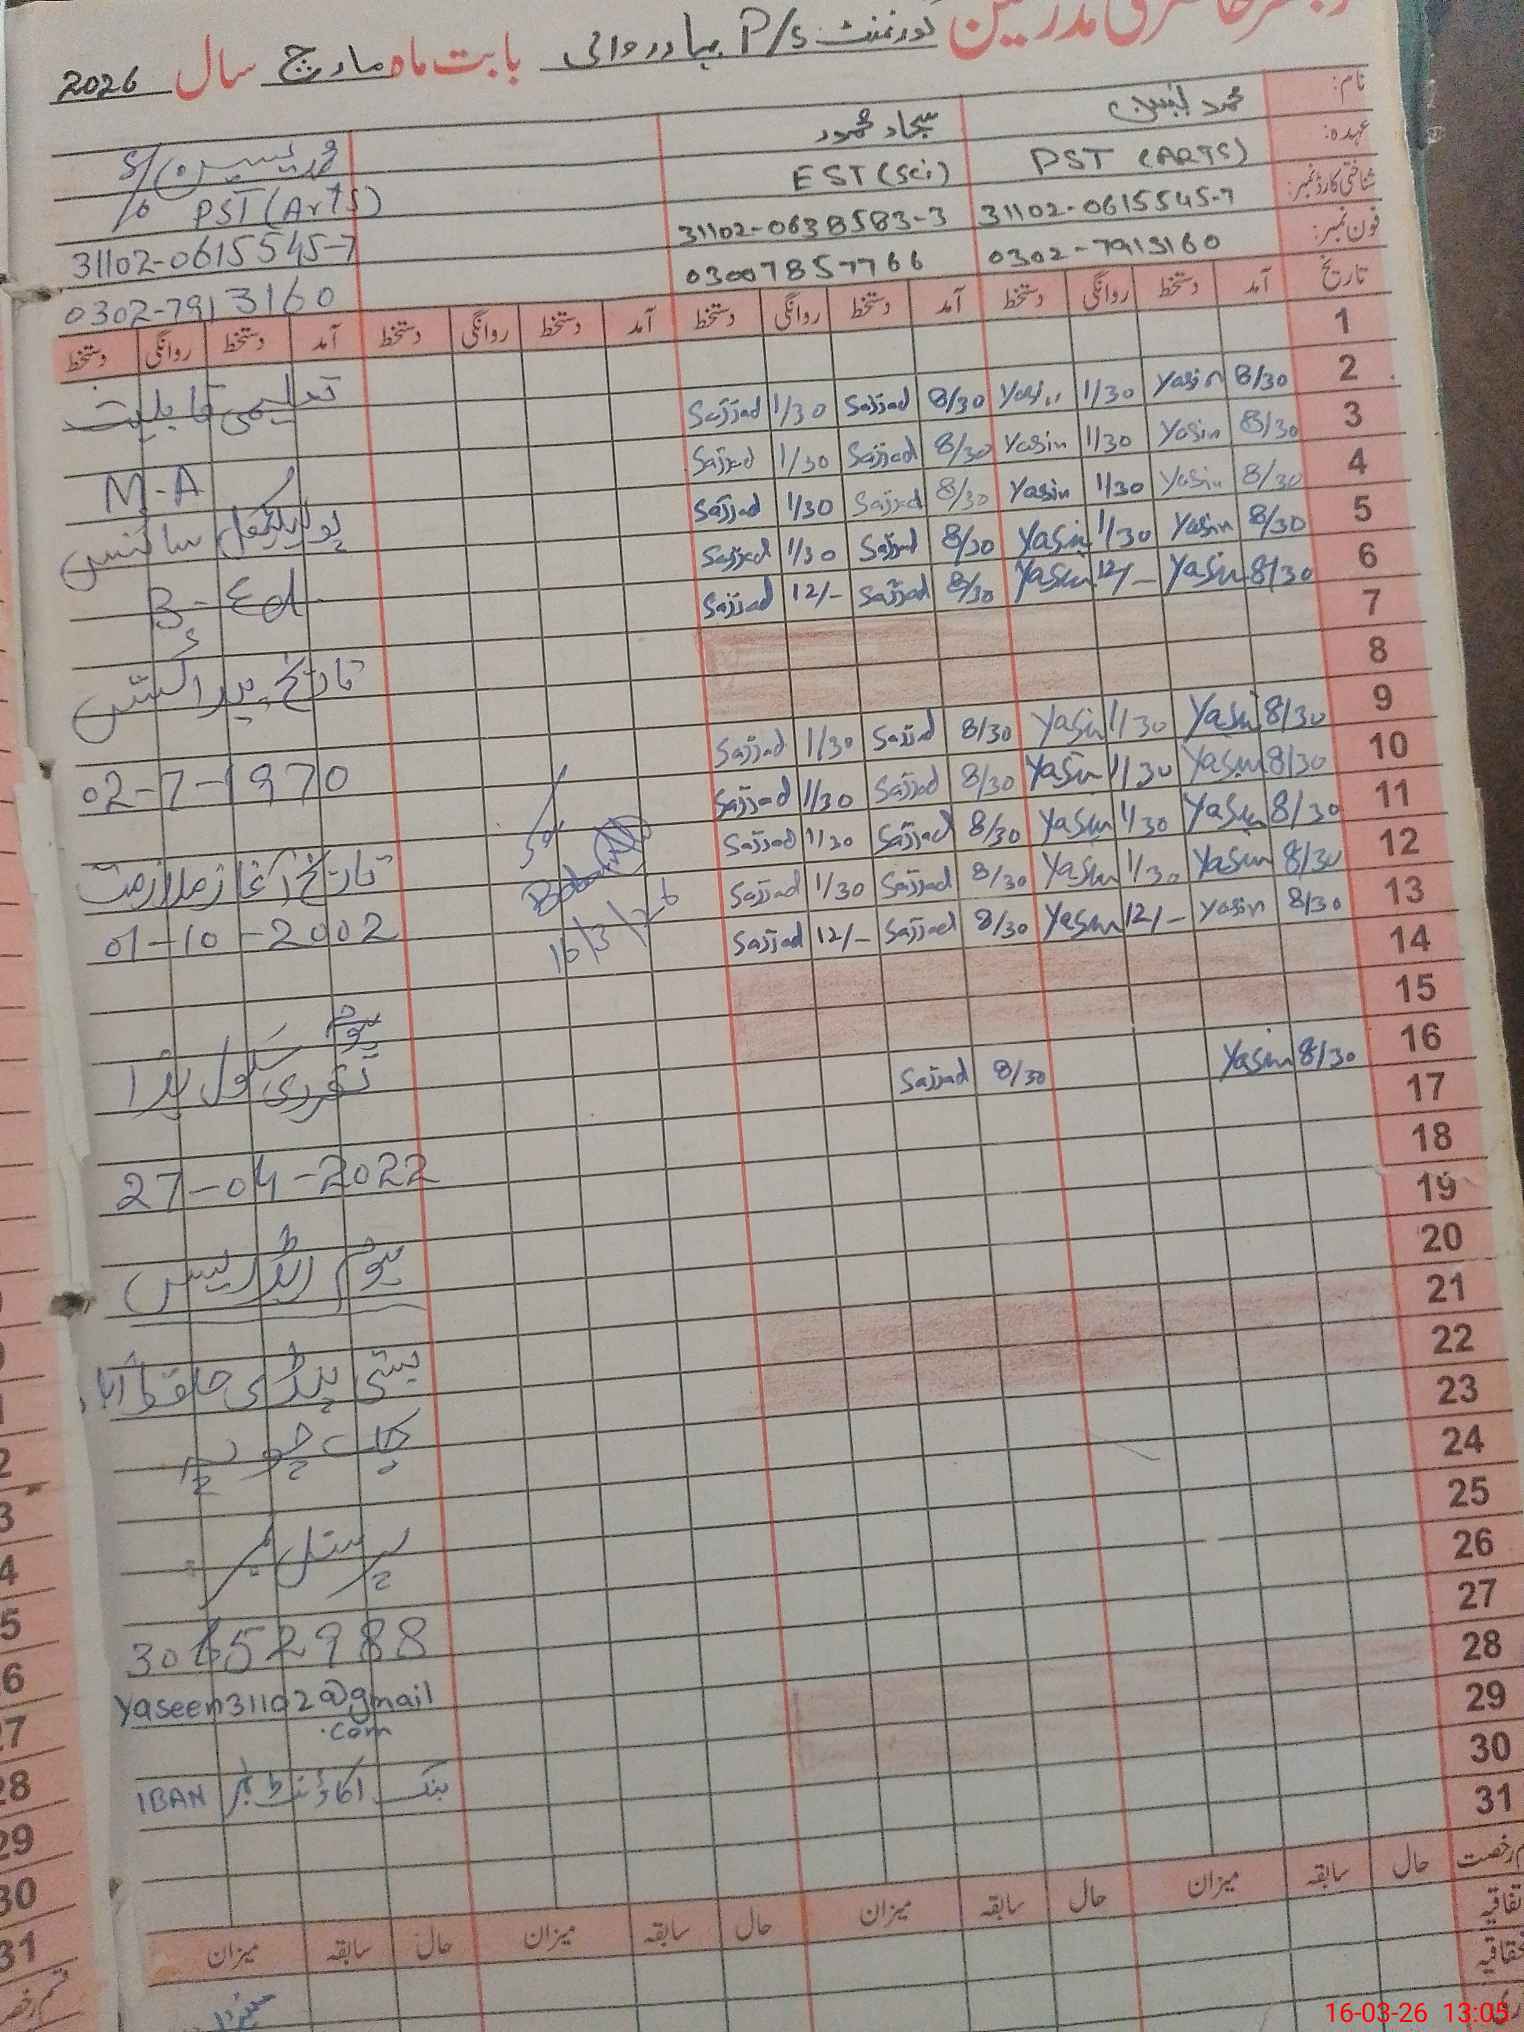 مدرسین گورنمنٹ P/S بہادر والی بابت ماہ مارچ سال 2026
نام: محمد یٰسین سجاد محمود
عہدہ: PST (ARTS) EST (Sci) PST (Arts)
شناختی کارڈ نمبر: 31102-0615545-7 31102-0638583-3 31102-0615545-7
فون نمبر: 0302-7913160 03007857766 0302-7913160
تاریخ آمد دستخط روانگی دستخط آمد دستخط روانگی دستخط آمد دستخط روانگی دستخط آمد دستخط روانگی دستخط
1
2 8/30 Yasin 1/30 Yasin 8/30 Sajjad 1/30 Sajjad
3 8/30 Yasin 1/30 Yasin 8/30 Sajjad 1/30 Sajjad
4 8/30 Yasin 1/30 Yasin 8/30 Sajjad 1/30 Sajjad
5 8/30 Yasin 1/30 Yasin 8/30 Sajjad 1/30 Sajjad
6 8/30 Yasin 12/- Yasin 8/30 Sajjad 12/- Sajjad
7
8
9 8/30 Yasin 1/30 Yasin 8/30 Sajjad 1/30 Sajjad
10 8/30 Yasin 1/30 Yasin 8/30 Sajjad 1/30 Sajjad
11 8/30 Yasin 1/30 Yasin 8/30 Sajjad 1/30 Sajjad
12 8/30 Yasin 1/30 Yasin 8/30 Sajjad 1/30 Sajjad
13 8/30 Yasin 12/- Yasin 8/30 Sajjad 12/- Sajjad
14
15
16 8/30 Yasin 8/30 Sajjad
17
18
19
20
21
22
23
24
25
26
27
28
29
30
31
16/3/26
تعلیمی قابلیت
M.A
پولیٹیکل سائنس
B-Ed
تاریخ پیدائش
02-7-1970
تاریخ آغاز ملازمت
01-10-2002
یوم تقرری سکول ہذا
27-04-2022
ہوم ایڈریس
بستی
پرسنل نمبر
30652988
Yaseen31102@gmail
.com
بنک اکاؤنٹ نمبر IBAN
رخصت حال سابقہ میزان حال سابقہ میزان حال سابقہ میزان حال سابقہ میزان
16-03-26 13:05